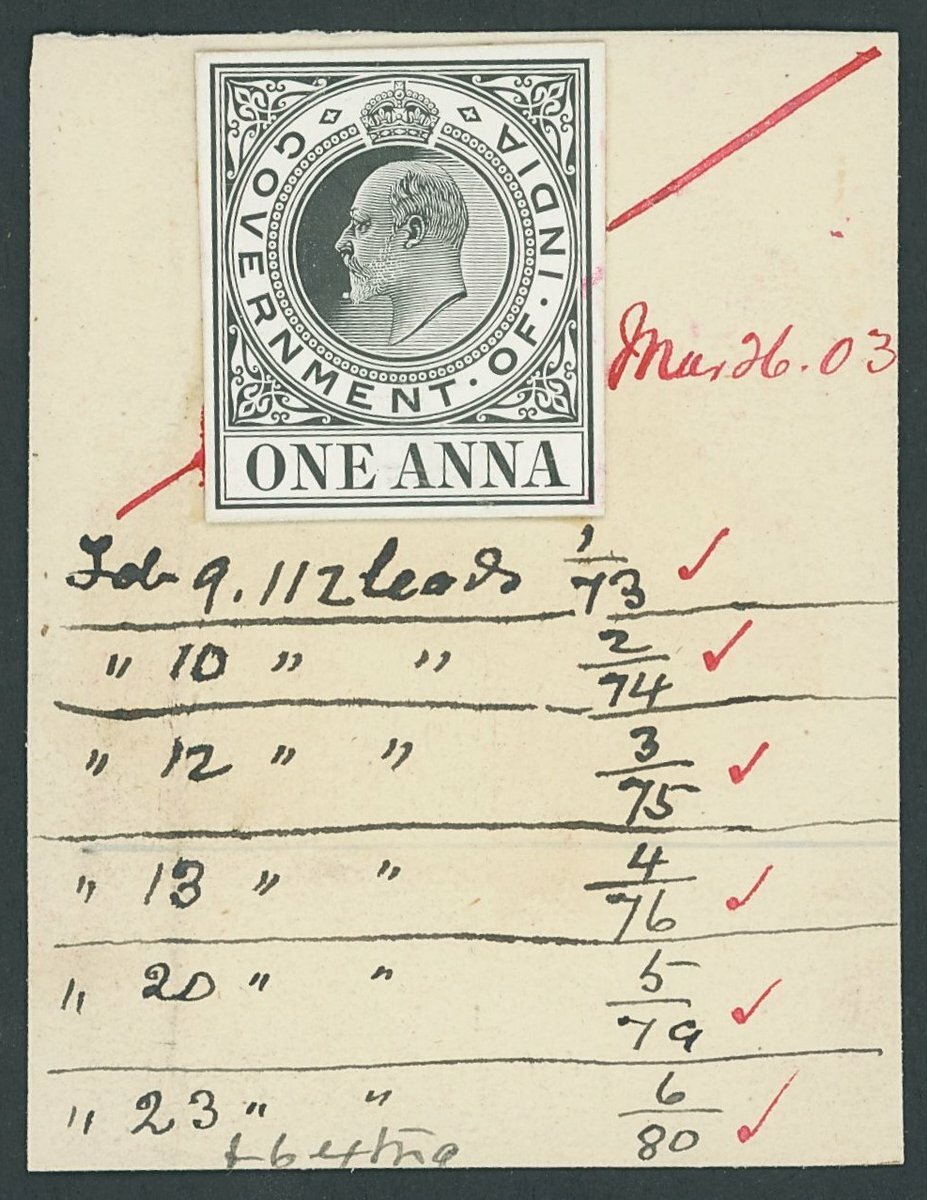 GOVERNMENT · OF · INDIA
ONE ANNA
Mar 26. 03
Feb 9. 112 leads 1/73 ✓
" 10 " " 2/74 ✓
" 12 " " 3/75 ✓
" 13 " " 4/76 ✓
" 20 " " 5/79 ✓
" 23 " " 6/80 ✓
& 6 extra